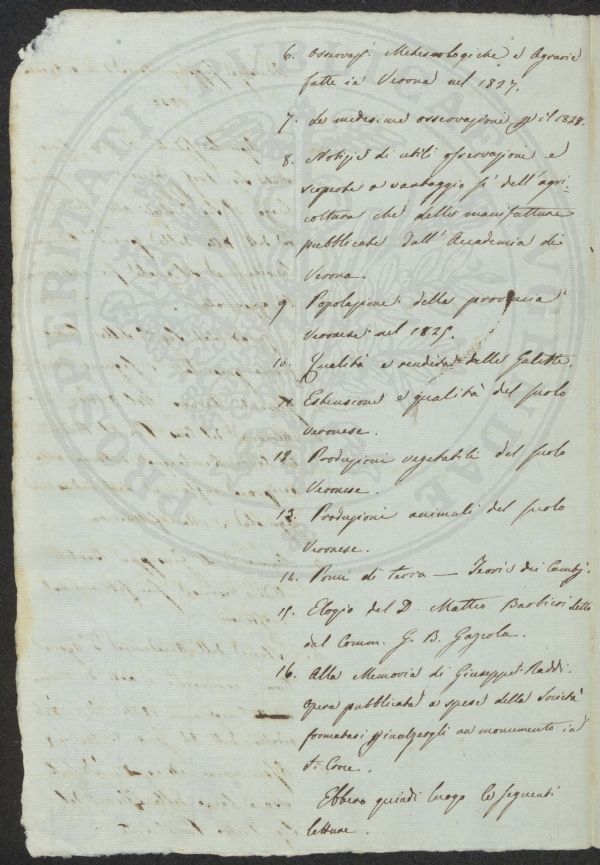 6. Osservaz. Meteorologiche e Agrarie
fatte in Verona nel 1827.
7. Le medesime osservazioni p il 1828.
8. Notizie di utili osservazioni e
scoperte a vantaggio sì dell'agri-
coltura che delle manifatture
pubblicate dall'Accademia di
Verona.
9. Popolazione della provincia
Veronese nel 1825.
10. Qualità e rendita delle Galette.
11. Estensione e qualità del suolo
veronese.
12. Produzioni vegetabili del suolo
Veronese.
13. Produzioni animali del suolo
Veronese.
14. Pomi di terra — dei
15. Elogio del D. Matteo Barbieri letto
dal Comm. G. B. Gazola.
16. Alla Memoria di Giuseppe Raddi.
opera pubblicata a spese della Società
formatasi p innalzargli un monumento in
S. Croce.
Ebbero quindi luogo le seguenti
letture.
PROSPERITATI PUBLICAE AUGENDAE